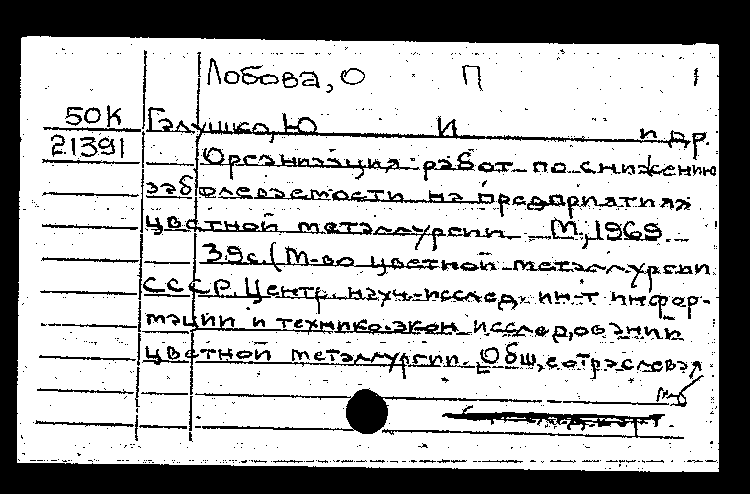 Лобова, О П 1
50К Галушко, Ю И и др.
21391 Организация работ по снижению
заболеваемости на предприятиях
цветной металлургии М., 1969
39с. (М-во цветной металлургии
СССР. Центр. науч.-исслед. ин-т инфор-
мации и технико-экон. исследовании
цветной металлургии. Общеотраслевая